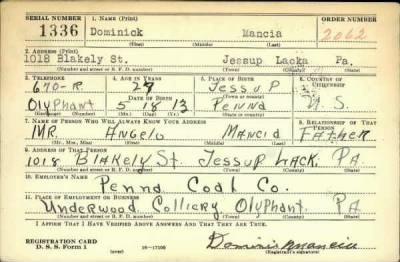 SERIAL NUMBER 1. NAME (Print) ORDER NUMBER
1336 Dominick Mancia 2062
(First) (Middle) (Last)
2. ADDRESS (Print)
1018 Blakely St. Jessup Lacka Pa.
(Number and street or R. F. D. number) (Town) (County) (State)
3. TELEPHONE 4. AGE IN YEARS 5. PLACE OF BIRTH 6. COUNTRY OF CITIZENSHIP
670-R 27 JESSUP
DATE OF BIRTH
OLYPHANT 5 18 13 PENNA U. S.
(Exchange) (Number) (Mo.) (Day) (Yr.) (State or country)
7. NAME OF PERSON WHO WILL ALWAYS KNOW YOUR ADDRESS 8. RELATIONSHIP OF THAT PERSON
MR. ANGELO MANCIA FATHER
(Mr., Mrs., Miss) (First) (Middle) (Last)
9. ADDRESS OF THAT PERSON
1018 BLAKELY ST. JESSUP LACK. PA
(Number and street or R. F. D. number) (Town) (County) (State)
10. EMPLOYER'S NAME
Penna Coal Co.
11. PLACE OF EMPLOYMENT OR BUSINESS
Underwood Colliery OLYPHANT PA
(Number and street or R. F. D. number) (Town) (County) (State)
I AFFIRM THAT I HAVE VERIFIED ABOVE ANSWERS AND THAT THEY ARE TRUE.
REGISTRATION CARD
D. S. S. Form 1 (over) 16—17105 Dominic Mancia
(Registrant's signature)